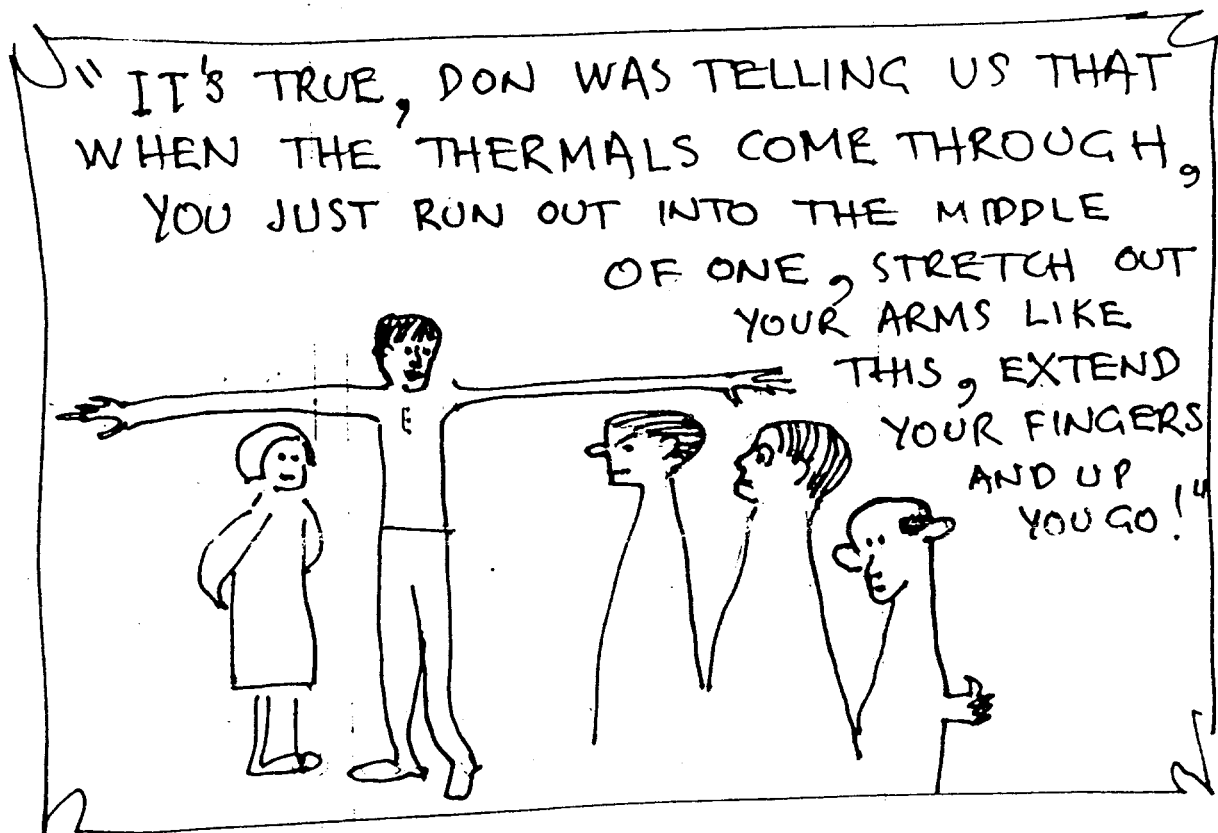 "IT'S TRUE, DON WAS TELLING US THAT
WHEN THE THERMALS COME THROUGH,
YOU JUST RUN OUT INTO THE MIDDLE
OF ONE, STRETCH OUT
YOUR ARMS LIKE
THIS, EXTEND
YOUR FINGERS
AND UP
YOU GO!"
E